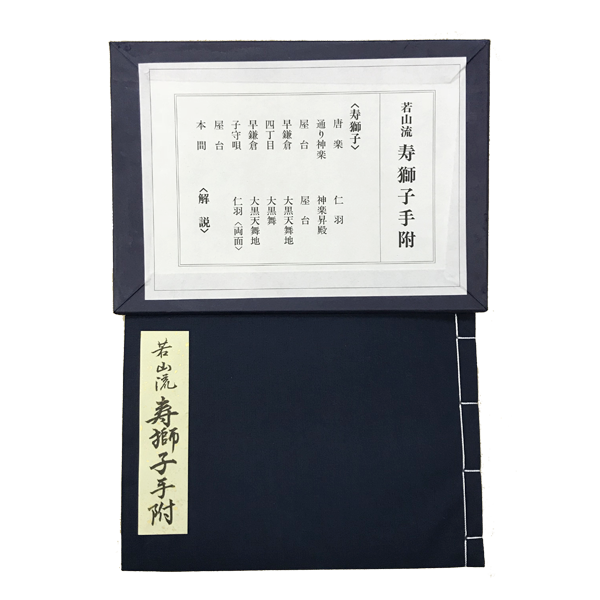 若山流 寿獅子手附
〈寿獅子〉
唐楽 仁羽
通り神楽 神楽昇殿
屋台 屋台
早鎌倉 大黒天舞地
四丁目 大黒舞
早鎌倉 大黒天舞地
子守唄 仁羽〈両面〉
屋台
本間 〈解説〉
若山流 寿獅子手附